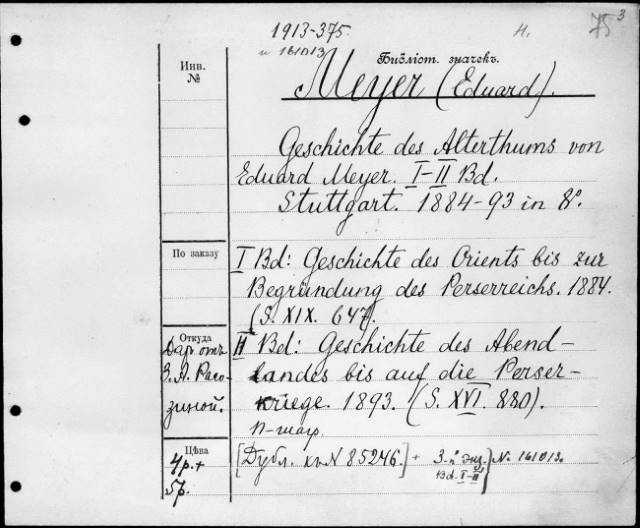 1913-375.
и 161013
н.
75 3
Инв.
№
Библіот. значекъ.
Meyer (Eduard).
Geschichte des Alterthums von
Eduard Meyer. I-II Bd.
Stuttgart. 1884-93 in 8º.
По заказу
I Bd: Geschichte des Orients bis zur
Begründung des Perserreichs. 1884.
(S. XIX. 647).
Откуда
Даръ отъ
З. А. Раго-
зиной.
II Bd: Geschichte des Abend-
landes bis auf die Perser-
kriege. 1893. (S. XVI. 880).
Цѣна
4р. +
5р.
[Дубл. къ N 85246.] + 3-й экз.
Bd. I-II } N. 161013.